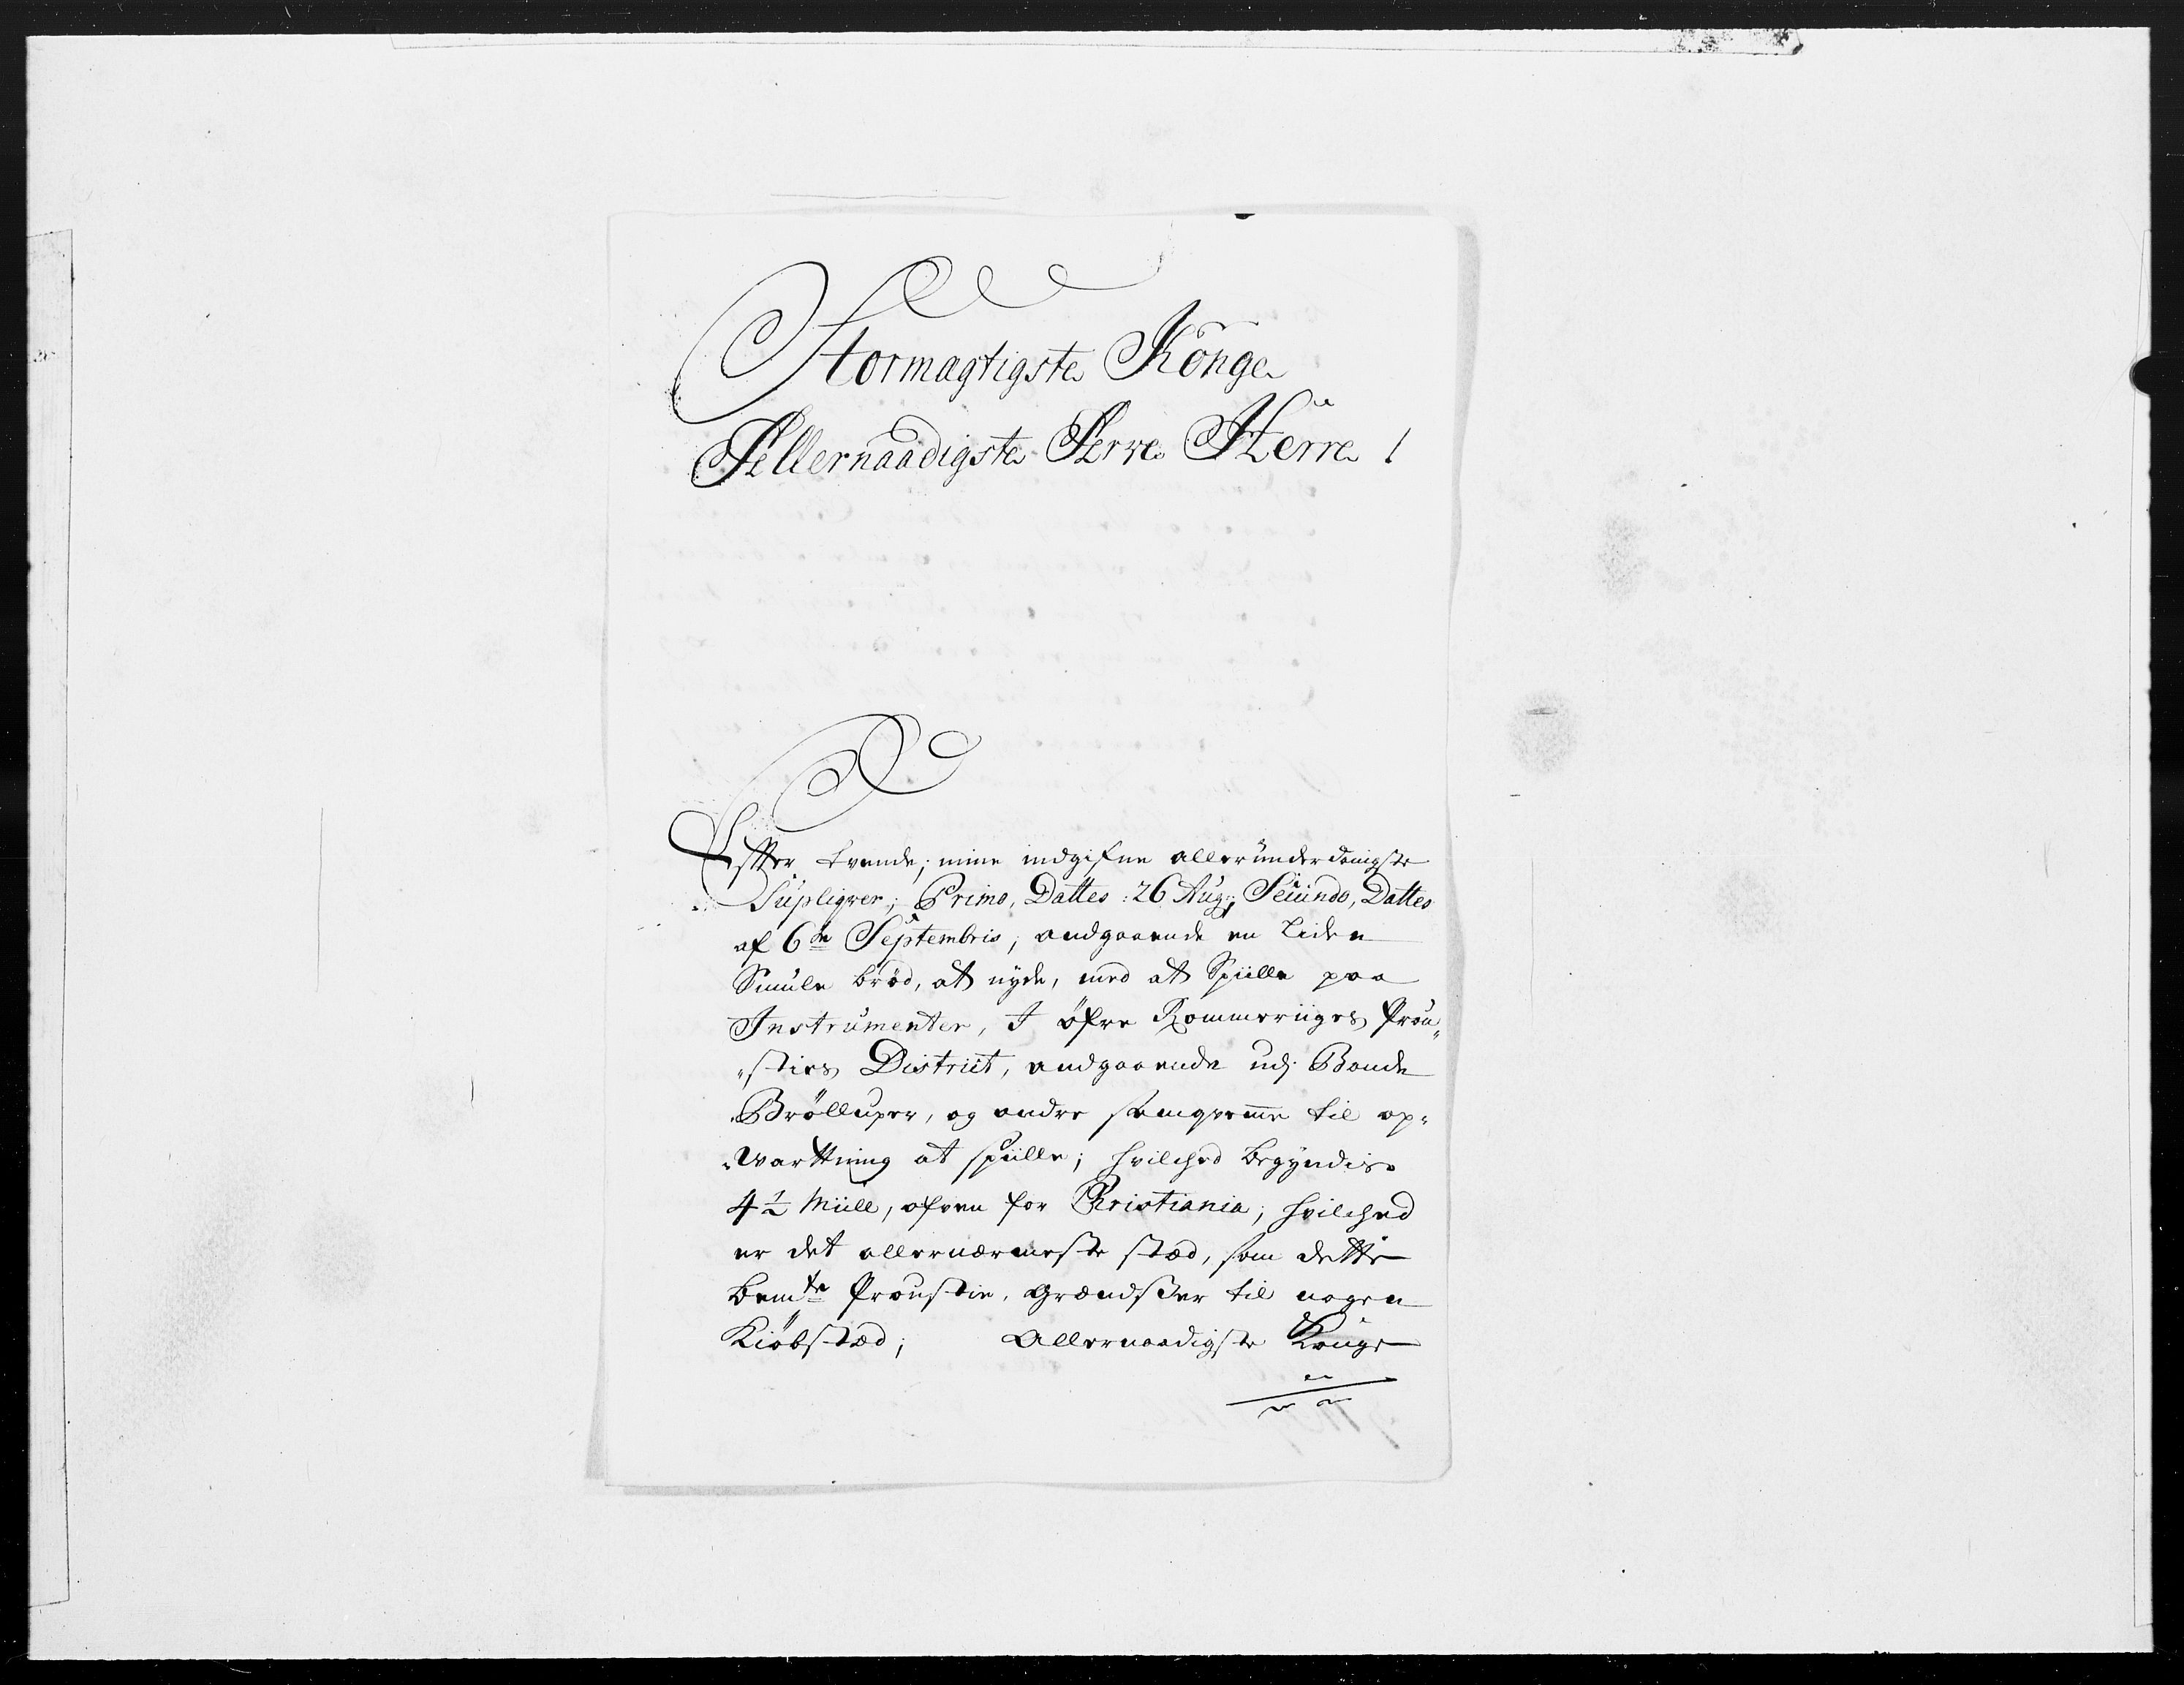 Stormagtigste Konge
Allernaadigste Arwe Herre!
Effter tvende, mine indgifne allerunderdanigste
Supliqver, Primo, Dattes: 26 Aug:, Secundo, Dattes
af 6de Septembris, andgaaende en Liden
Smule brød, at nyde, med at Spille paa
Instrumenter, I øfre Rommeriiges Prou„
„sties District, andgaaende udj Bonde
Brølluper, og andre til op„
„Warttning at spille; hvilched begyndis
4½ Miill, ofven for Christiania, hvilched
er det allernærmeste stæd, som dette
bemte Proustie, Grændser til nogen
Kiøbstæd; Allernaadigste Konge